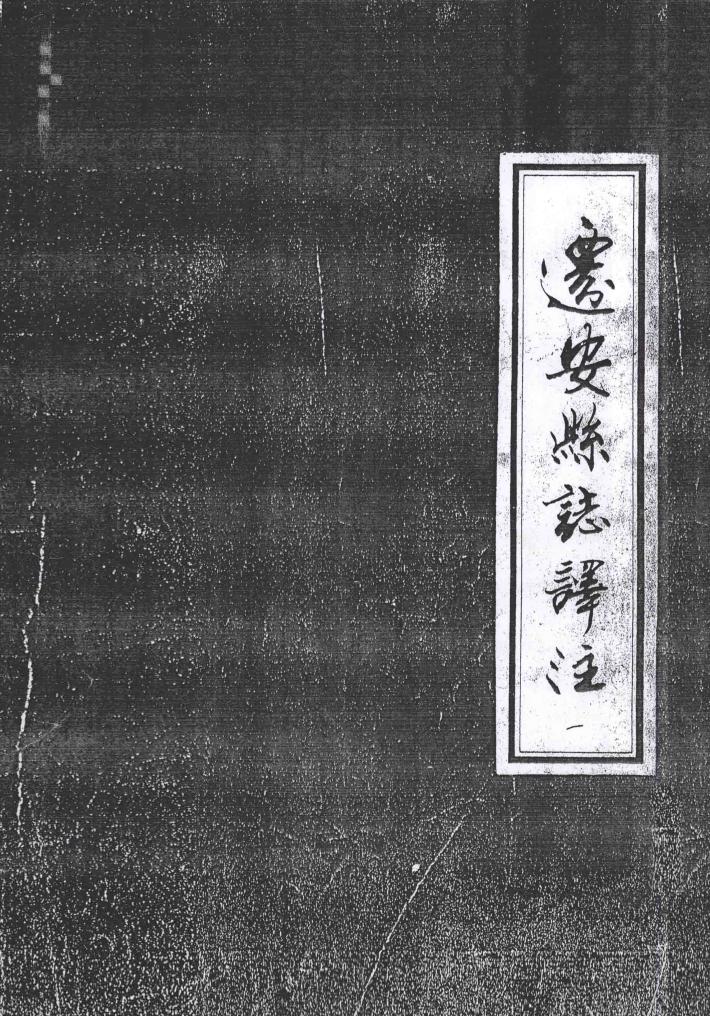 遷安縣誌譯注 一